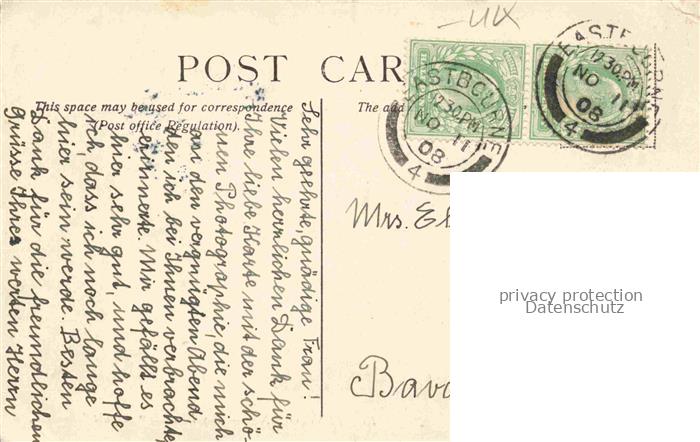 POST CAR
This space may be used for correspondence
(Post office Regulation).
The add
EASTBOURNE
12.30 PM
NO 11
08
4
EASTBOURNE
12.30 PM
NO 11
08
4
Sehr geehrte, gnädige Frau!
Vielen herrlichen Dank für
Ihre liebe Karte mit der schö-
nen Photographie, die mich
an den vergnügten Abend
den ich bei Ihnen verbrachte,
erinnerte. Mir gefällt es
hier sehr gut, und hoffe
ich, dass ich noch lange
hier sein werde. Besten
Dank für die freundlichen
Grüsse Ihres werten Herrn
Mrs. El
Bava
privacy protection
Datenschutz